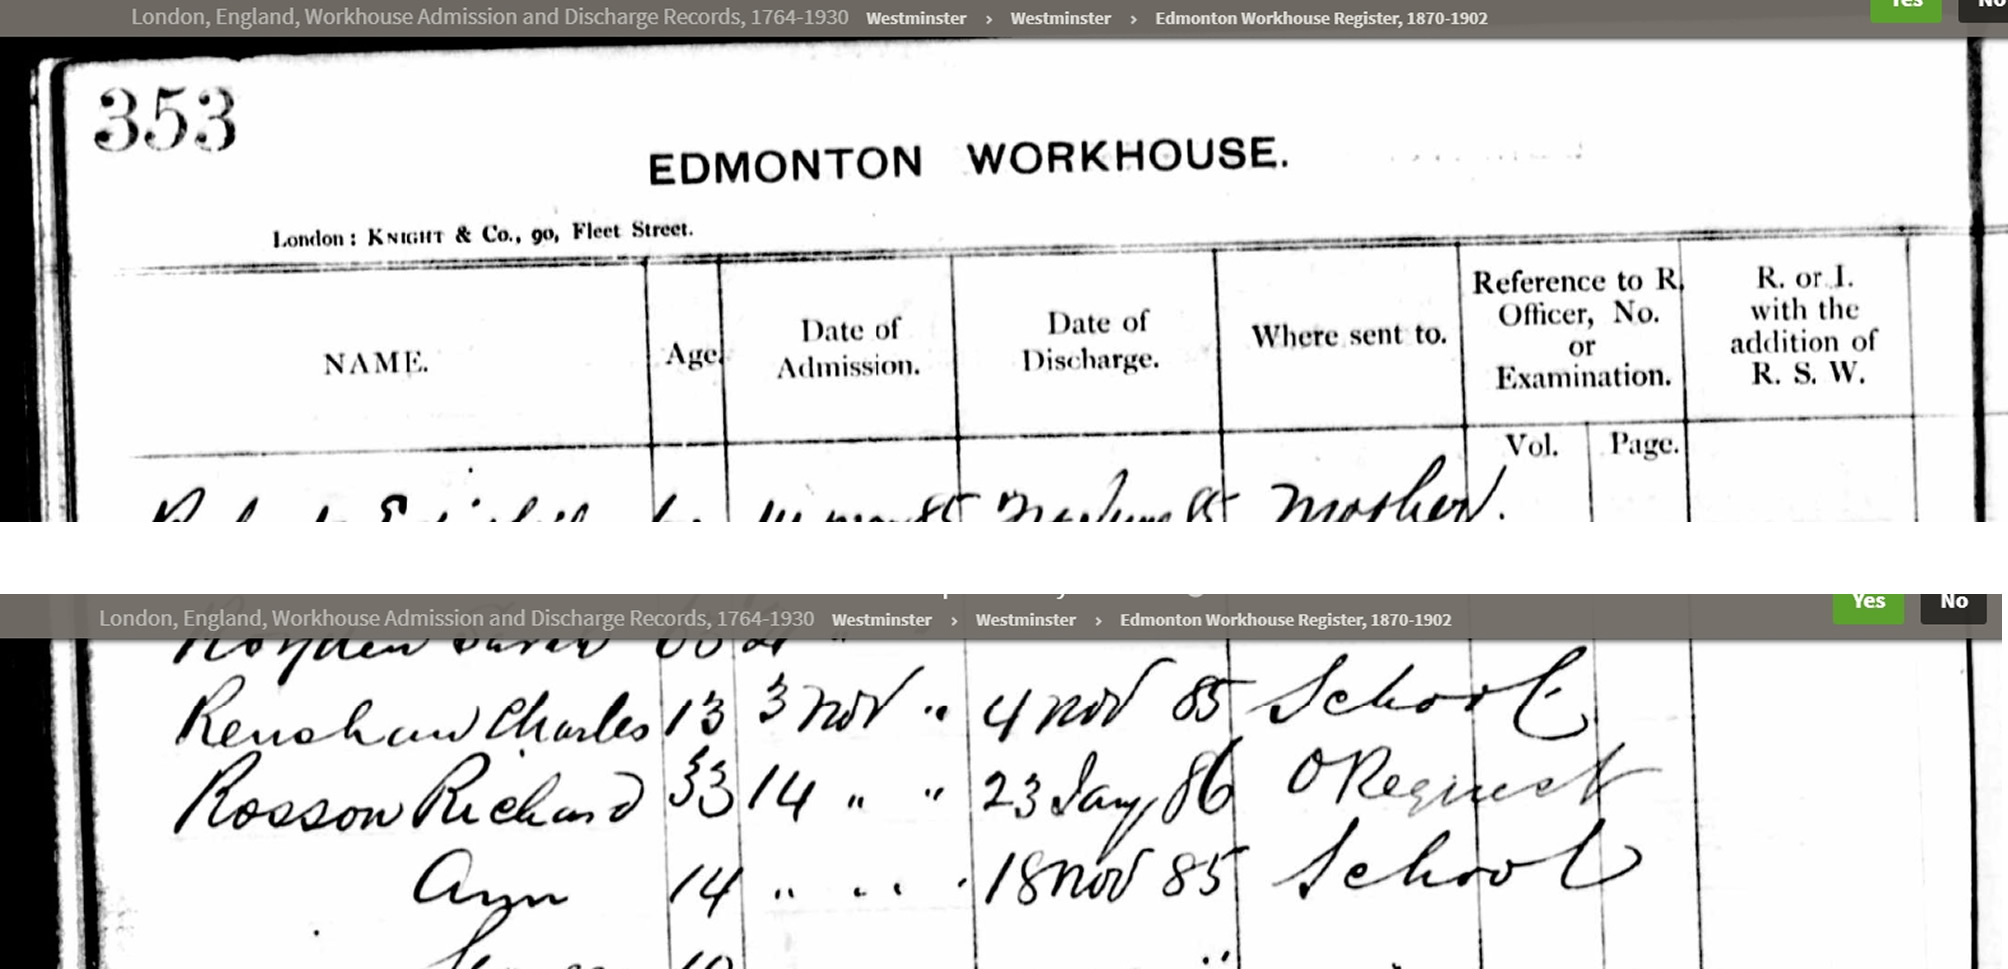 London, England, Workhouse Admission and Discharge Records, 1764-1930 Westminster › Westminster › Edmonton Workhouse Register, 1870-1902 Yes No
353
EDMONTON WORKHOUSE.
London: KNIGHT & Co., 90, Fleet Street.
NAME. Age. Date of Admission. Date of Discharge. Where sent to. Reference to R. Officer, No. or Examination. R. or I. with the addition of R. S. W.
Vol. Page.
14 may 85 June 85 Mother.
London, England, Workhouse Admission and Discharge Records, 1764-1930 Westminster › Westminster › Edmonton Workhouse Register, 1870-1902 Yes No
Renshaw Charles 13 3 nov " 4 nov 85 School
Rosson Richard 33 14 " " 23 Jany 86 O Request
Ann 14 " " " 18 nov 85 School
10 "